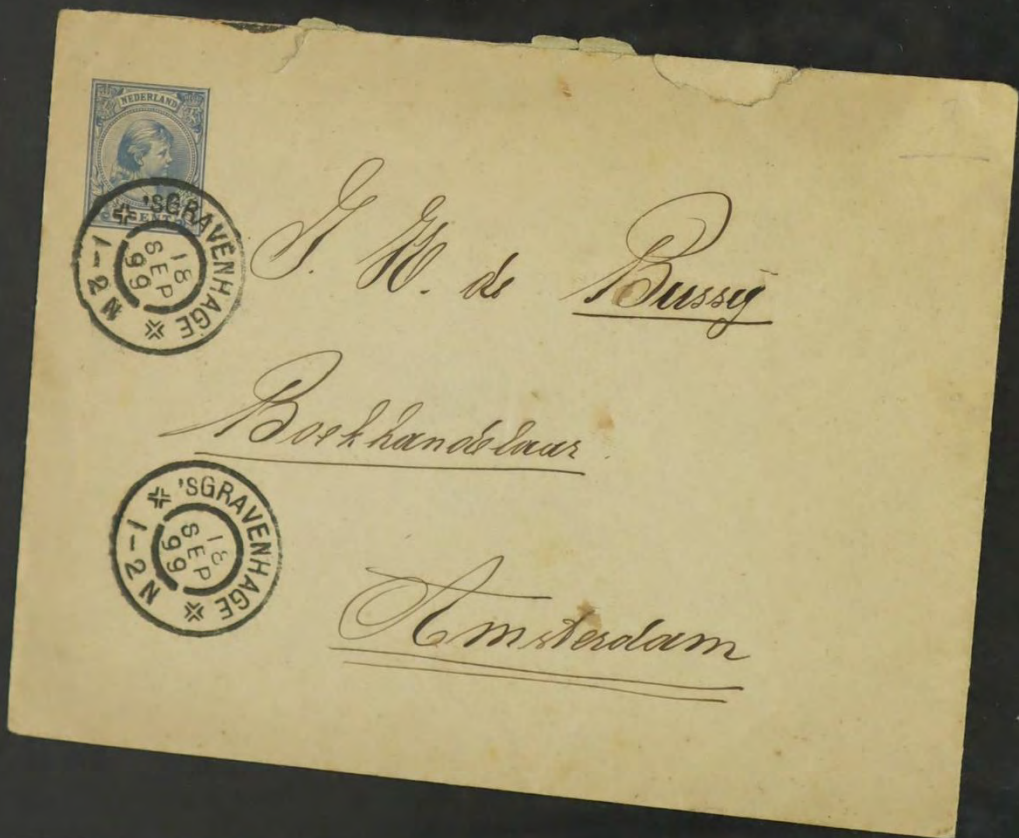 NEDERLAND
CENT
'SGRAVENHAGE
18
SEP
99
1-2N
J. H. de Bussy
Boekhandelaar
'SGRAVENHAGE
18
SEP
99
1-2N
Amsterdam